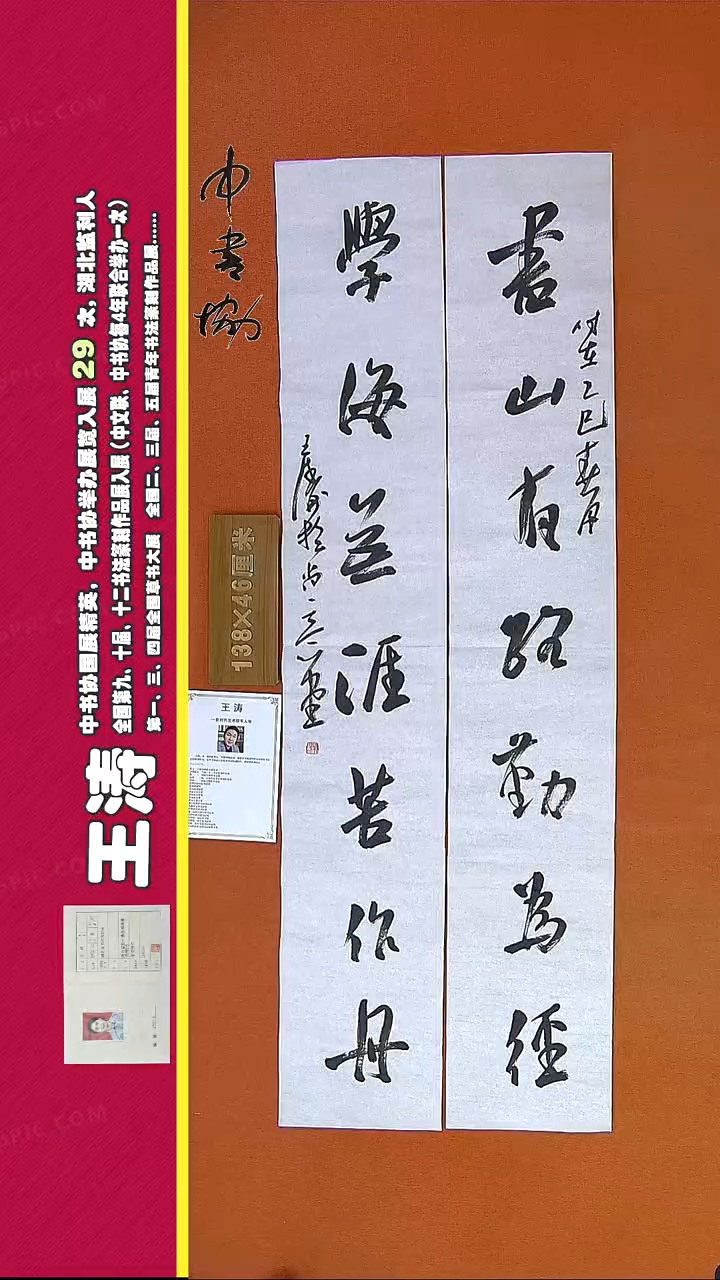 王涛
中书协国展精英，中书协举办展览入展 29 次，湖北监利人
全国第九、十届、十二书法篆刻作品展入展（中文联、中书协每4年联合举办一次）
第一、三、四届全国草书大展 全国二、三届、五届青年书法篆刻作品展……
中書协
時在乙巳春月
書山有路勤為徑
學海無涯苦作舟
王濤於尚
138×46厘米
王 涛